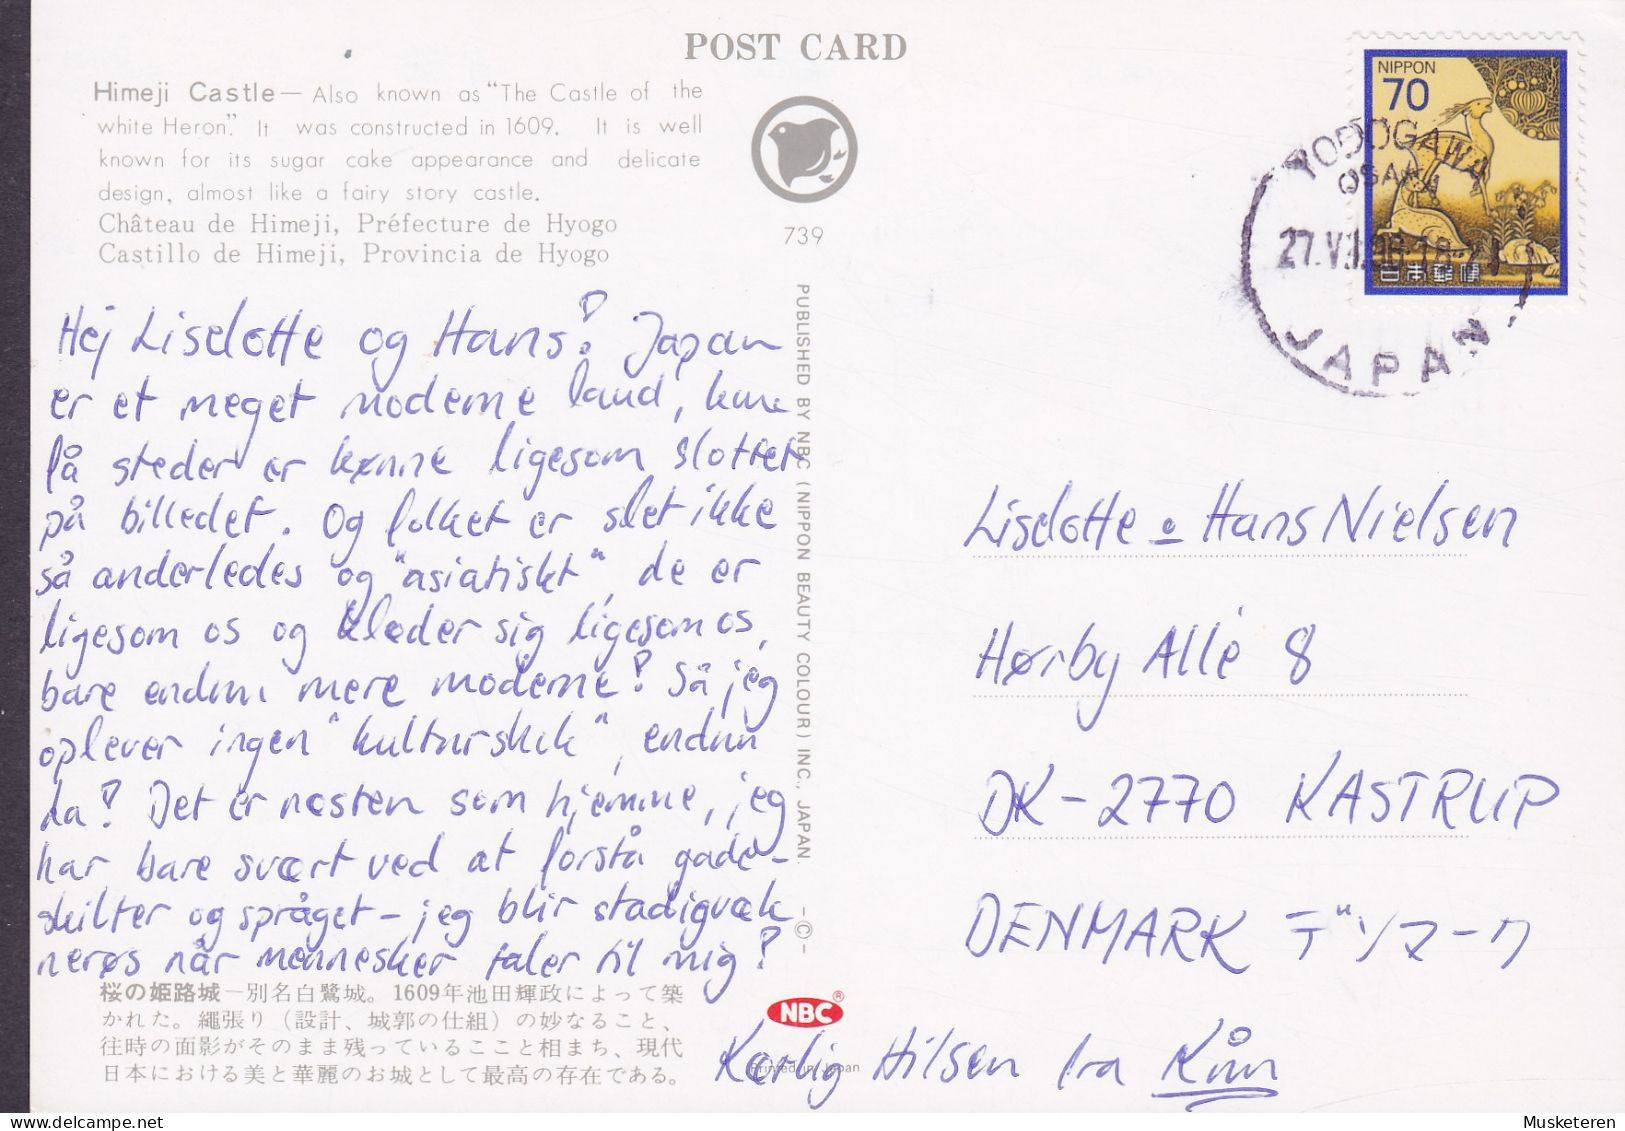 POST CARD
Himeji Castle — Also known as "The Castle of the
white Heron." It was constructed in 1609. It is well
known for its sugar cake appearance and delicate
design, almost like a fairy story castle.
Château de Himeji, Préfecture de Hyogo
Castillo de Himeji, Provincia de Hyogo
739
NIPPON
70
日本郵便
YODOGAWA
OSAKA
JAPAN
Hej Liselotte og Hans! Japan
er et meget moderne land, kun
få steder er kønne ligesom slottet
på billedet. Og folket er slet ikke
så anderledes og "asiatiskt", de er
ligesom os og klæder sig ligesom os,
bare endnu mere moderne! Så jeg
oplever ingen "kulturshok", endnu
da! Det er næsten som hjemme, jeg
har bare svært ved at forstå gade-
skilter og språget - jeg blir stadigvæk
nerøs når mennesker taler til mig!
Kærlig Hilsen fra
PUBLISHED BY NBC (NIPPON BEAUTY COLOUR) INC., JAPAN. -©-
Liselotte o Hans Nielsen
Hørby Allé 8
DK-2770 KASTRUP
DENMARK デンマーク
桜の姫路城—別名白鷺城。1609年池田輝政によって築
かれた。縄張り（設計、城郭の仕組）の妙なること、
往時の面影がそのまま残っているここと相まち、現代
日本における美と華麗のお城として最高の存在である。
NBC®
Printed in Japan
Musketeren